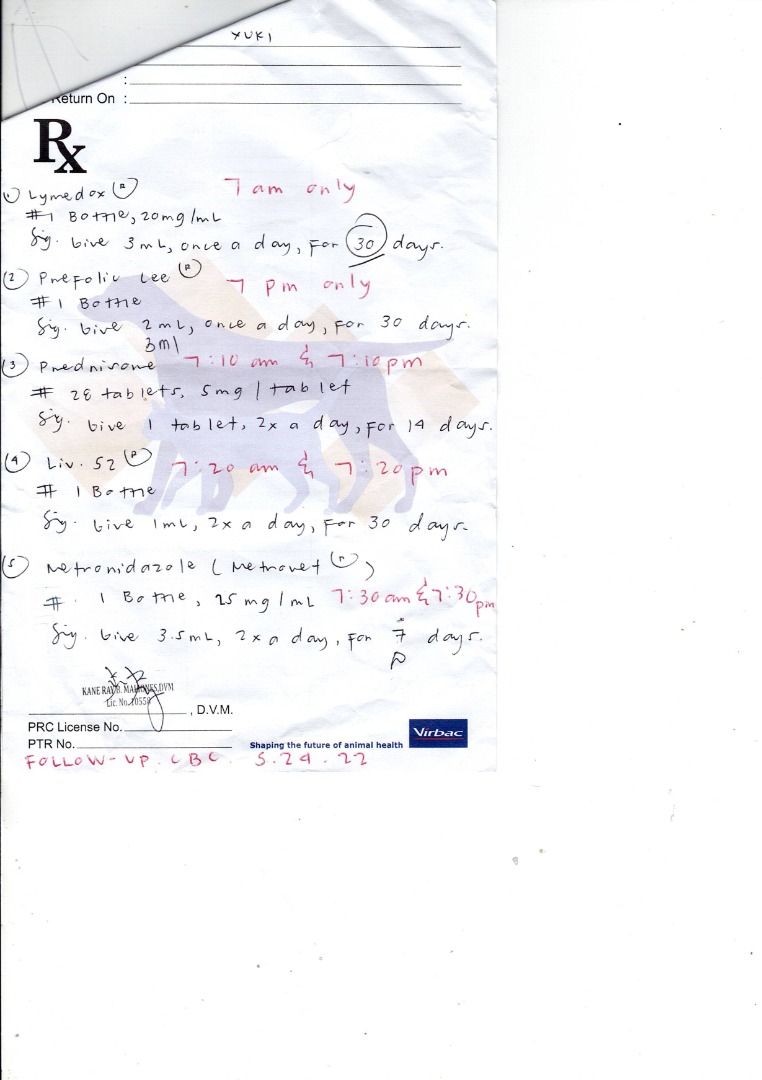 YUKI
:
Return On :
Rx
① Lymedox ® 7 am only
#1 Bottle, 20mg/mL
Sig. Give 3mL, once a day, for 30 days.
② Prefolic Cee ® 7 pm only
# 1 Bottle
Sig. Give 2mL, once a day, for 30 days.
3ml
③ Prednisone 7:10 am & 7:10pm
# 28 tablets, 5mg / tablet
Sig. Give 1 tablet, 2x a day, for 14 days.
④ Liv. 52 ® 7:20 am & 7:20pm
# 1 Bottle
Sig. Give 1mL, 2x a day, for 30 days.
⑤ Metronidazole ( Metrovet ® )
# 1 Bottle, 25 mg/mL 7:30am & 7:30pm
Sig. Give 3.5mL, 2x a day, for 7 days.
KANE RAY B. DVM
Lic. No.
, D.V.M.
PRC License No.
PTR No.
Shaping the future of animal health Virbac
FOLLOW-UP. CBC. 5.24.22